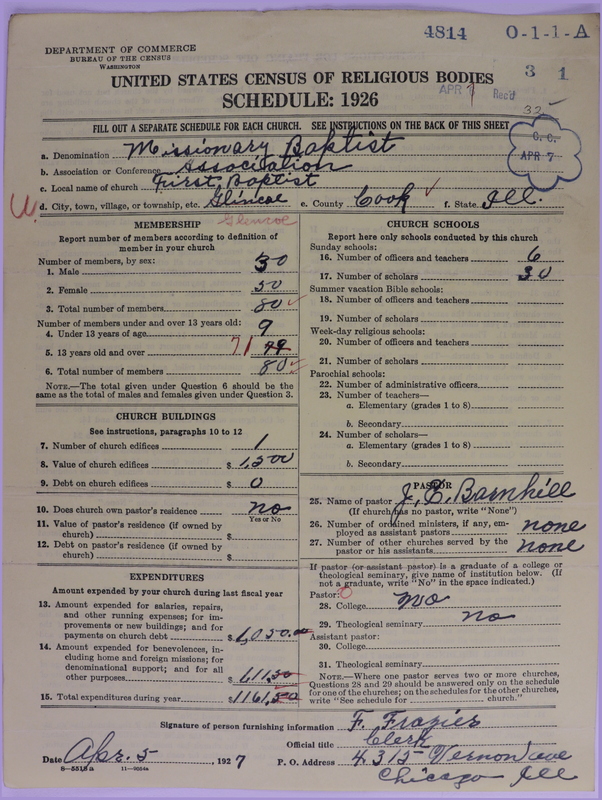 4814 O-1-1-A
DEPARTMENT OF COMMERCE
BUREAU OF THE CENSUS
WASHINGTON
UNITED STATES CENSUS OF RELIGIOUS BODIES
3 1
SCHEDULE: 1926
APR Rec'd
32
FILL OUT A SEPARATE SCHEDULE FOR EACH CHURCH. SEE INSTRUCTIONS ON THE BACK OF THIS SHEET
APR 7
a. Denomination Missionary Baptist
b. Association or Conference Association
c. Local name of church First Baptist
d. City, town, village, or township, etc. Glincoe e. County Cook f. State Ill.
Glencoe
MEMBERSHIP
Report number of members according to definition of
member in your church
Number of members, by sex:
1. Male 30
2. Female 50
3. Total number of members 80
Number of members under and over 13 years old:
4. Under 13 years of age 9
5. 13 years old and over 71
6. Total number of members 80
NOTE.—The total given under Question 6 should be the
same as the total of males and females given under Question 3.
CHURCH BUILDINGS
See instructions, paragraphs 10 to 12
7. Number of church edifices 1
8. Value of church edifices $1,500
9. Debt on church edifices $ 0
10. Does church own pastor's residence no
Yes or No
11. Value of pastor's residence (if owned by
church) $
12. Debt on pastor's residence (if owned by
church) $
EXPENDITURES
Amount expended by your church during last fiscal year
13. Amount expended for salaries, repairs,
and other running expenses; for im-
provements or new buildings; and for
payments on church debt $1,050.00
14. Amount expended for benevolences, in-
cluding home and foreign missions; for
denominational support; and for all
other purposes $111.50
15. Total expenditures during year $1161.50
CHURCH SCHOOLS
Report here only schools conducted by this church
Sunday schools:
16. Number of officers and teachers 6
17. Number of scholars 30
Summer vacation Bible schools:
18. Number of officers and teachers
19. Number of scholars
Week-day religious schools:
20. Number of officers and teachers
21. Number of scholars
Parochial schools:
22. Number of administrative officers
23. Number of teachers—
a. Elementary (grades 1 to 8)
b. Secondary
24. Number of scholars—
a. Elementary (grades 1 to 8)
b. Secondary
PASTOR
25. Name of pastor J. E. Barnhill
(If church has no pastor, write "None")
26. Number of ordained ministers, if any, em-
ployed as assistant pastors none
27. Number of other churches served by the
pastor or his assistants none
If pastor (or assistant pastor) is a graduate of a college or
theological seminary, give name of institution below. (If
not a graduate, write "No" in the space indicated.)
Pastor: 0
28. College no
29. Theological seminary no
Assistant pastor:
30. College
31. Theological seminary
NOTE.—Where one pastor serves two or more churches,
Questions 28 and 29 should be answered only on the schedule
for one of the churches; on the schedules for the other churches,
write "See schedule for church."
Signature of person furnishing information F. Frazies
Official title Clerk
Date Apr. 5 1927 P. O. Address 4315 Vernon ave
8—5518a 11—9054a Chicago Ill